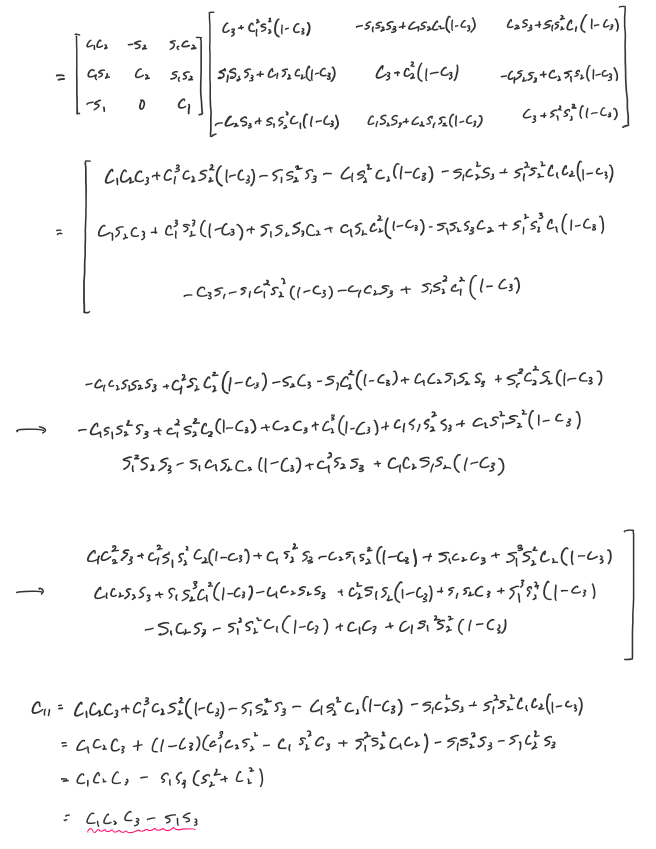 = [ C₁C₂ -S₂ S₁C₂ ] [ C₃+C₁²S₂²(1-C₃) -S₁S₂S₃+C₁S₂C₂(1-C₃) C₂S₃+S₁S₂²C₁(1-C₃) ]
[ C₁S₂ C₂ S₁S₂ ] [ S₁S₂S₃+C₁S₂C₂(1-C₃) C₃+C₂²(1-C₃) -C₁S₂S₃+C₂S₁S₂(1-C₃) ]
[ -S₁ 0 C₁ ] [ -C₂S₃+S₁S₂²C₁(1-C₃) C₁S₂S₃+C₂S₁S₂(1-C₃) C₃+S₁²S₂²(1-C₃) ]
C₁C₂C₃+C₁³C₂S₂²(1-C₃)-S₁S₂²S₃-C₁S₂²C₂(1-C₃)-S₁C₂²S₃+S₁²S₂²C₁C₂(1-C₃)
= C₁S₂C₃+C₁³S₂³(1-C₃)+S₁S₂S₃C₂+C₁S₂C₂²(1-C₃)-S₁S₂S₃C₂+S₁²S₂³C₁(1-C₃)
-C₃S₁-S₁C₁²S₂²(1-C₃)-C₁C₂S₃+S₁S₂²C₁²(1-C₃)
-C₁C₂S₁S₂S₃+C₁²S₂C₂²(1-C₃)-S₂C₃-S₁C₂²(1-C₃)+C₁C₂S₁S₂S₃+S₁²C₂²S₂(1-C₃)
→ -C₁S₁S₂²S₃+C₁²S₂²C₂(1-C₃)+C₂C₃+C₂³(1-C₃)+C₁S₁S₂²S₃+C₂S₁²S₂²(1-C₃)
S₁²S₂S₃-S₁C₁S₂C₂(1-C₃)+C₁²S₂S₃+C₁C₂S₁S₂(1-C₃)
C₁C₂²S₃+C₁²S₁S₂²C₂(1-C₃)+C₁S₂²S₃-C₂S₁S₂²(1-C₃)+S₁C₂C₃+S₁³S₂²C₂(1-C₃)
→ C₁C₂S₂S₃+S₁S₂³C₁²(1-C₃)-C₁C₂S₂S₃+C₂²S₁S₂(1-C₃)+S₁S₂C₃+S₁³S₂³(1-C₃)
-S₁C₂S₃-S₁²S₂²C₁(1-C₃)+C₁C₃+C₁S₁²S₂²(1-C₃)
C₁₁ = C₁C₂C₃+C₁³C₂S₂²(1-C₃)-S₁S₂²S₃-C₁S₂²C₂(1-C₃)-S₁C₂²S₃+S₁²S₂²C₁C₂(1-C₃)
= C₁C₂C₃+(1-C₃)(C₁³C₂S₂²-C₁S₂²C₃+S₁²S₂²C₁C₂)-S₁S₂²S₃-S₁C₂²S₃
= C₁C₂C₃-S₁S₃(S₂²+C₂²)
= C₁C₂C₃-S₁S₃